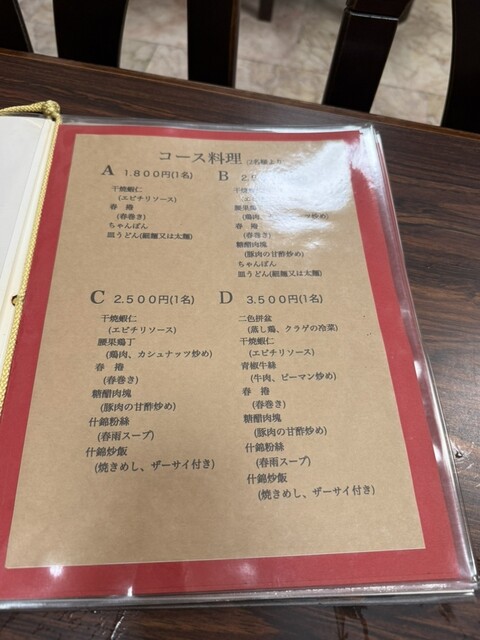 コース料理 (2名様より
A 1.800円(1名)
干焼蝦仁
(エビチリソース)
春 捲
(春巻き)
ちゃんぽん
皿うどん(細麺又は太麺)
B 2.
干焼
(エ
腰果鶏
(鶏肉 ッツ炒め)
春 捲
(春巻き)
糖醋肉塊
(豚肉の甘酢炒め)
ちゃんぽん
皿うどん(細麺又は太麺)
C 2.500円(1名)
干焼蝦仁
(エビチリソース)
腰果鶏丁
(鶏肉、カシュナッツ炒め)
春 捲
(春巻き)
糖醋肉塊
(豚肉の甘酢炒め)
什錦粉絲
(春雨スープ)
什錦炒飯
(焼きめし、ザーサイ付き)
D 3.500円(1名)
二色拼盆
(蒸し鶏、クラゲの冷菜)
干焼蝦仁
(エビチリソース)
青椒牛絲
(牛肉、ピーマン炒め)
春 捲
(春巻き)
糖醋肉塊
(豚肉の甘酢炒め)
什錦粉絲
(春雨スープ)
什錦炒飯
(焼きめし、ザーサイ付き)